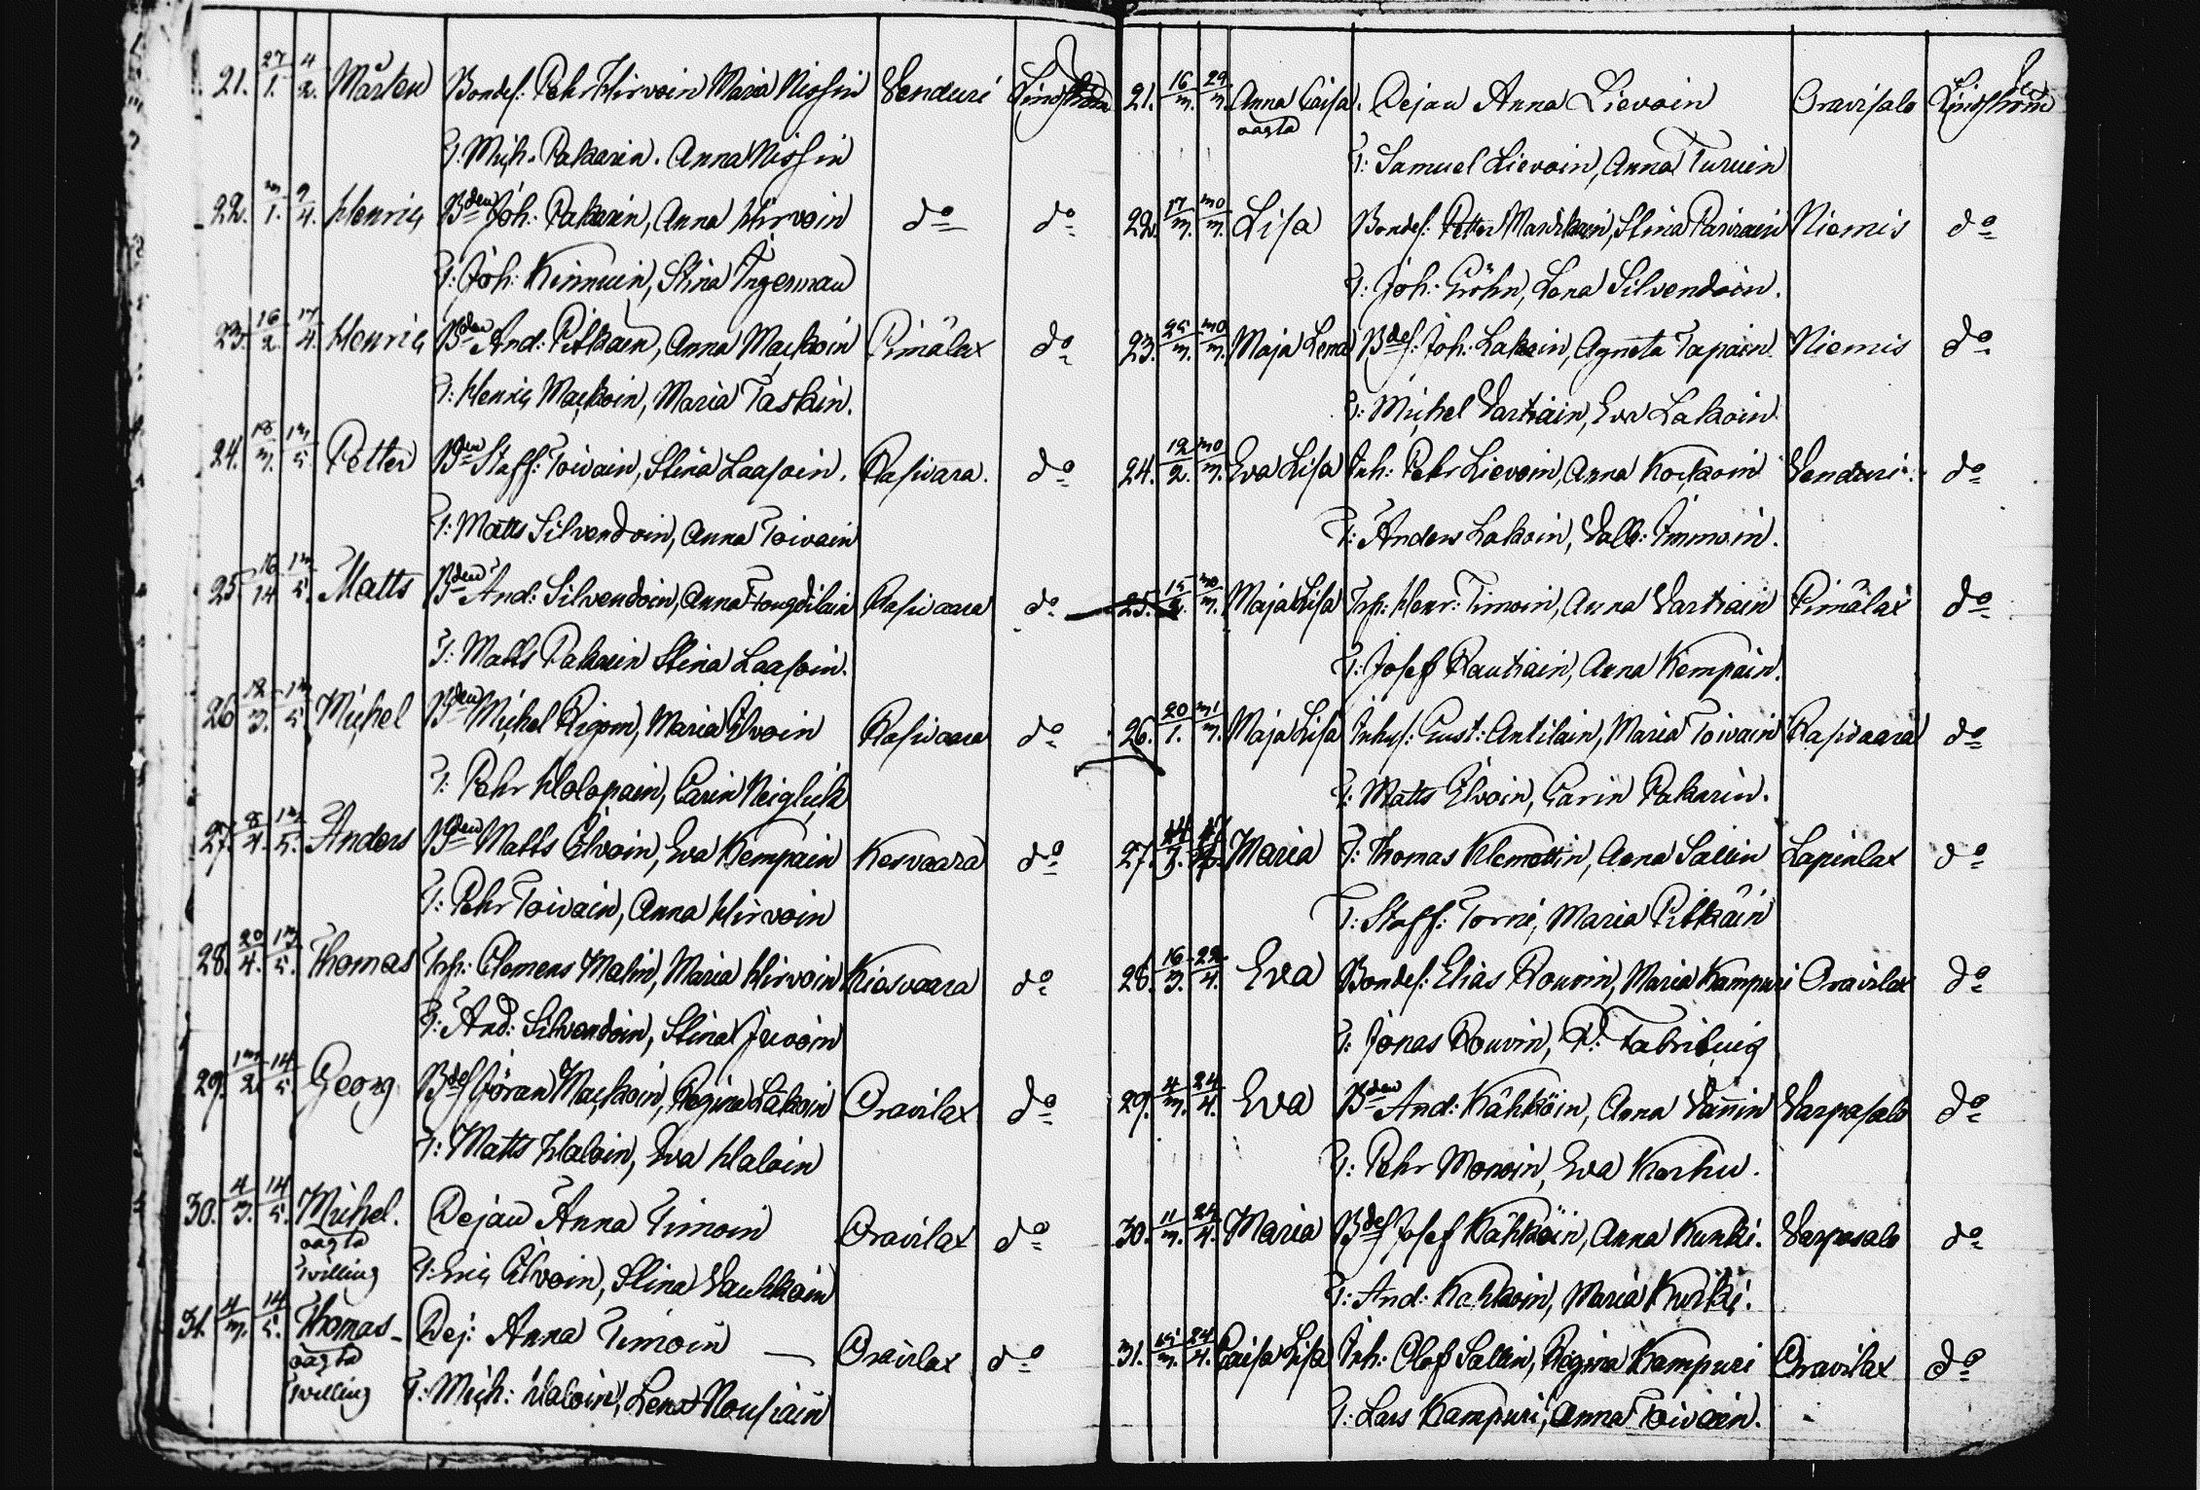 21. 27/1. 4/2. Mårten Bondes: Pehr Hirvoin Maria Nissin Venduri Lindström
T: Mich. Pakarin. Anna Nissin
22. 3/1. 9/4. Henric Bden Joh: Pakarin, Anna Hirvoin do do
T: Joh: Kinnuin, Stina Ingerman
23. 16/2. 17/4. Henric Bden And: Pitkäin, Anna Mackoin Pimälax do
T: Henric Mackoin, Maria Taskin.
24. 18/3. 13/5. Petter Bden Staff: Toivain, Stina Laasoin. Rasivara. do
T: Matts Silvendoin, Anna Toivain
25. 16/14 13/5. Matts Bden And: Silvendoin, Anna Rasivaara do
T: Matts Pakarin Stina Laasoin.
26 12/3. 13/5. Michel Bden Michel Rigoin, Maria Elvoin Rasivaara do
T: Pehr Holopain, Carin Neiglick
27. 8/4. 13/5. Anders Bden Matts Elvoin, Eva Kempain Kesvaara do
T: Pehr Toivain, Anna Hirvoin
28. 20/4. 13/5. Thomas Trp: Clemens Malin, Maria Hirvoin Kiesvaara do
T: And: Silvendoin, Stina Juvoin
29. 13/2. 14/5 Georg Bdes Jöran Mackoin, Regina Lakoin Oravilax do
T: Matts Haloin, Eva Haloin
30. 4/3. 14/5. Michel. Dejan Anna Timoin Oravilax do
oägta
Tvilling T: Eric Elvoin, Stina Vauhkoin
31. 4/3. 14/5. Thomas Dej: Anna Timoin — Oravilax do
oägta
Tvilling T: Mich: Haloin, Lena Nousiain
21. 16/3. 29/3. Anna Caisa. Dejan Anna Lievoin Oravisalo Lindström
oägta T: Samuel Lievoin, Anna Turuin
22. 17/3. 30/3. Lisa Bondes: Petter Martikain, Stina Parviain Niemis do
T: Joh: Gröhn, Lena Silvendoin.
23. 25/3. 30/3. Maja Lena Bdes: Joh: Lakoin, Agneta Tapain Niemis do
T: Michel Vartiain, Eva Lakoin.
24. 12/2. 30/3. Eva Lisa Inh: Pehr Lievoin, Anna Kockoin Venduri. do
T: Anders Lakoin, Valb: Immoin.
25. 15/2. 30/3. Maja Lisa Trp: Henr: Timoin, Anna Vartiain Pimälax do
T: Josef Rautiain, Anna Kempain.
26. 20/1. 31/3. Maja Lisa Inhys: Gust: Antilain, Maria Toivain Rasivaara do
T: Matts Elvoin, Carin Pakarin.
27. Maria T: Thomas Klemettin, Anna Sallin Lapinlax do
T: Staff: Torni, Maria Pitkäin
28. 16/3. 22/4. Eva Bondes: Elias Rouvin, Maria Kampuri Oravilax do
T: Jonas Rouvin,
29. 4/3. 24/4. Eva Bden And: Kähköin, Anna Vännin Varpasalo do
T: Pehr Monoin, Eva Karhu.
30. 11/3. 24/4. Maria Bdes Josef Kähköin, Anna Kurki. Varpasalo do
T: And: Kähköin, Maria Kurki.
31. 15/3. 24/4. Caisa Lisa Inh: Olof Sallin, Regina Kampuri Oravilax do
T: Lars Kampuri, Anna Toivain.